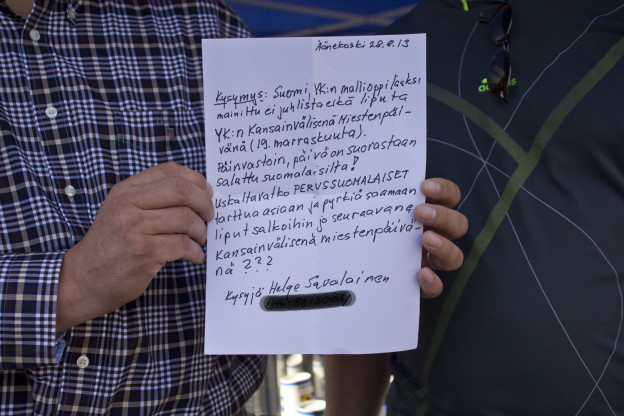 Äänekoski 28.8.13
Kysymys: Suomi, YK:n mallioppilaaksi
mainittu ei juhlista eikä liputa
YK:n Kansainvälisenä Miestenpäi-
vänä (19. marraskuuta).
Päinvastoin, päivä on suorastaan
salattu suomalaisilta!
Uskaltavatko PERUSSUOMALAISET
tarttua asiaan ja pyrkiä saamaan
liput salkoihin jo seuraavana
Kansainvälisenä miestenpäivä-
nä ???
Kysyjä Helge Savolainen
adidas